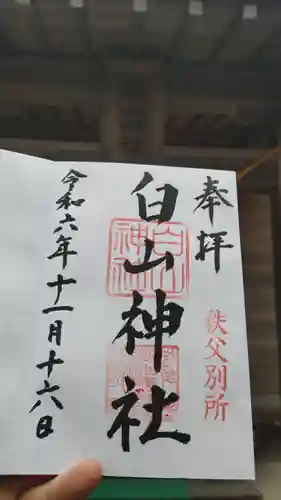 奉拝
秩父別所
白山神社
白山神社
令和六年十一月十六日